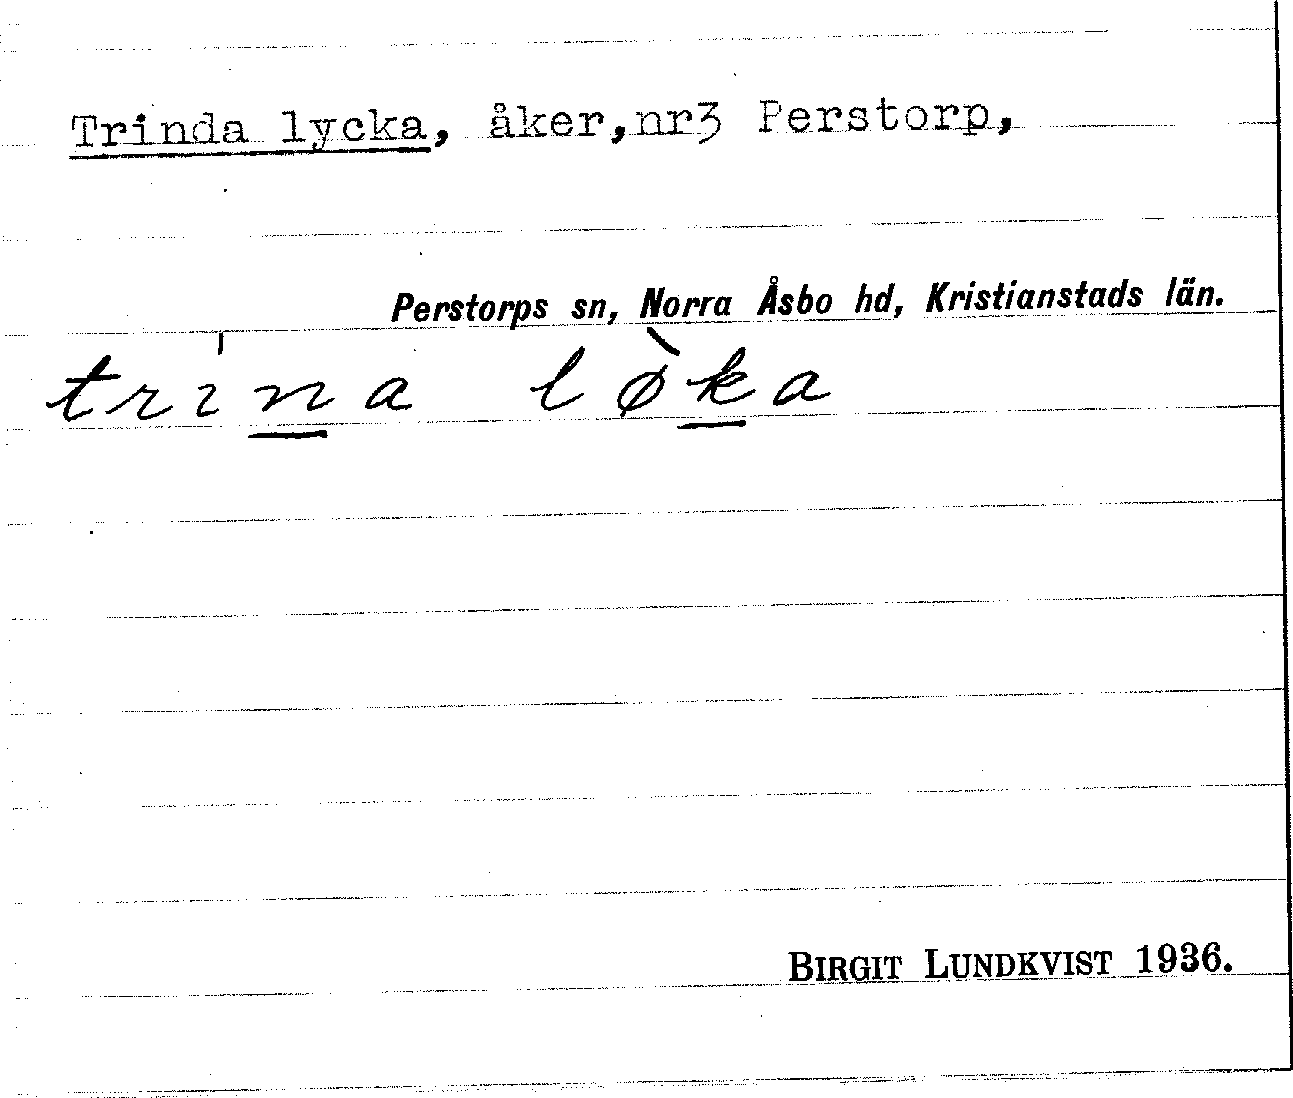 Trinda lycka, åker,nr3 Perstorp,
Perstorps sn, Norra Åsbo hd, Kristianstads län.
trina løka
BIRGIT LUNDKVIST 1936.